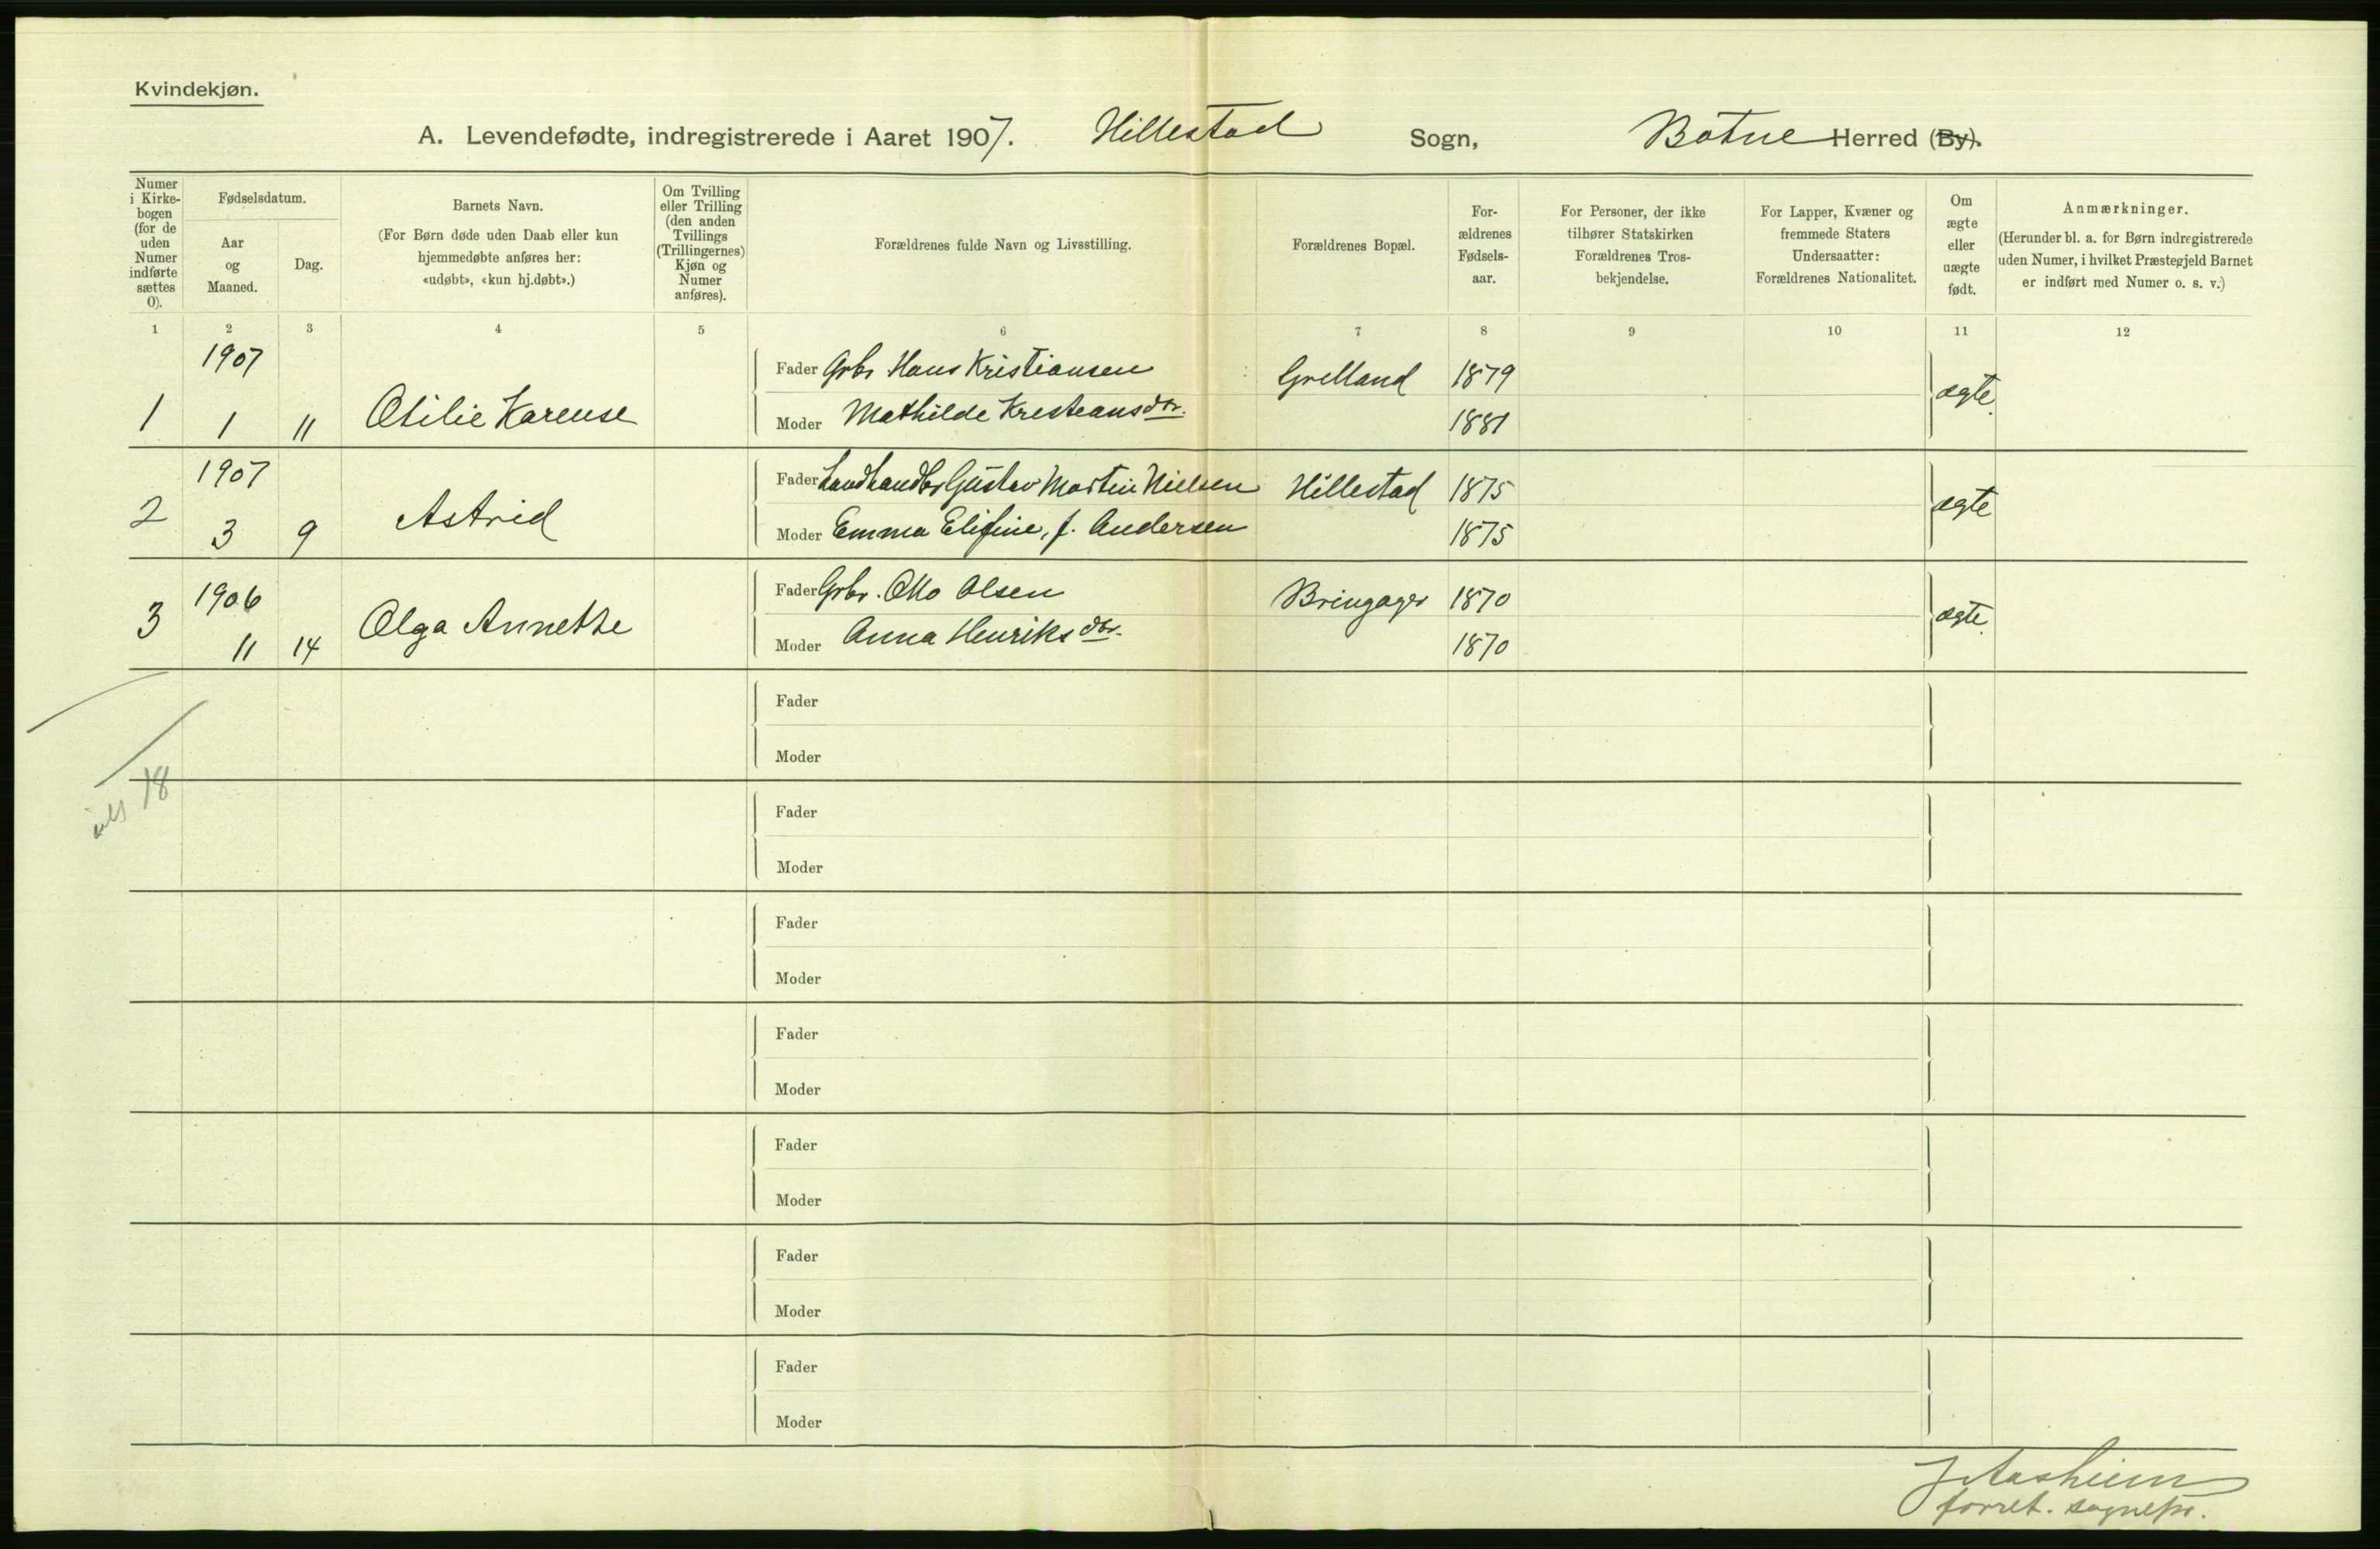 Kvindekjøn.
A. Levendefødte, indregistrerede i Aaret 1907. Hillestad Sogn, Botne Herred (By).
Numer i Kirkebogen (for de uden Numer indførte sættes 0).
Fødselsdatum.
Aar og Maaned.
Dag.
Barnets Navn.
(For Børn døde uden Daab eller kun
hjemmedøbte anføres her:
«udøbt», «kun hj.døbt».)
Om Tvilling
eller Trilling
(den anden
Tvillings
(Trillingernes)
Kjøn og
Numer
anføres).
Forældrenes fulde Navn og Livsstilling.
Forældrenes Bopæl.
For-
ældrenes
Fødsels-
aar.
For Personer, der ikke
tilhører Statskirken
Forældrenes Tros-
bekjendelse.
For Lapper, Kvæner og
fremmede Staters
Undersaatter:
Forældrenes Nationalitet.
Om
ægte
eller
uægte
født.
Anmærkninger.
(Herunder bl. a. for Børn indregistrerede
uden Numer, i hvilket Præstegjeld Barnet
er indført med Numer o. s. v.)
1 2 3 4 5 6 7 8 9 10 11 12
1907
Fader Gbr. Hans Kristiansen Grelland 1879 ægte.
1 1 11 Otilie Karense
Moder Mathilde Kresteansdtr. 1881
1907
Fader Landhandler Gustav Martin Nielsen Hillestad 1875 ægte
2 3 9 Astrid
Moder Emma Elifine, f. Andersen 1875
1906
Fader Gbr. Otto Olsen Bringager 1870 ægte.
3 11 14 Olga Annette
Moder Anna Henriksdtr. 1870
Fader
Moder
18
Fader
Moder
Fader
Moder
Fader
Moder
Fader
Moder
Fader
Moder
Fader
Moder
J Aasheim
forret. sognepr.